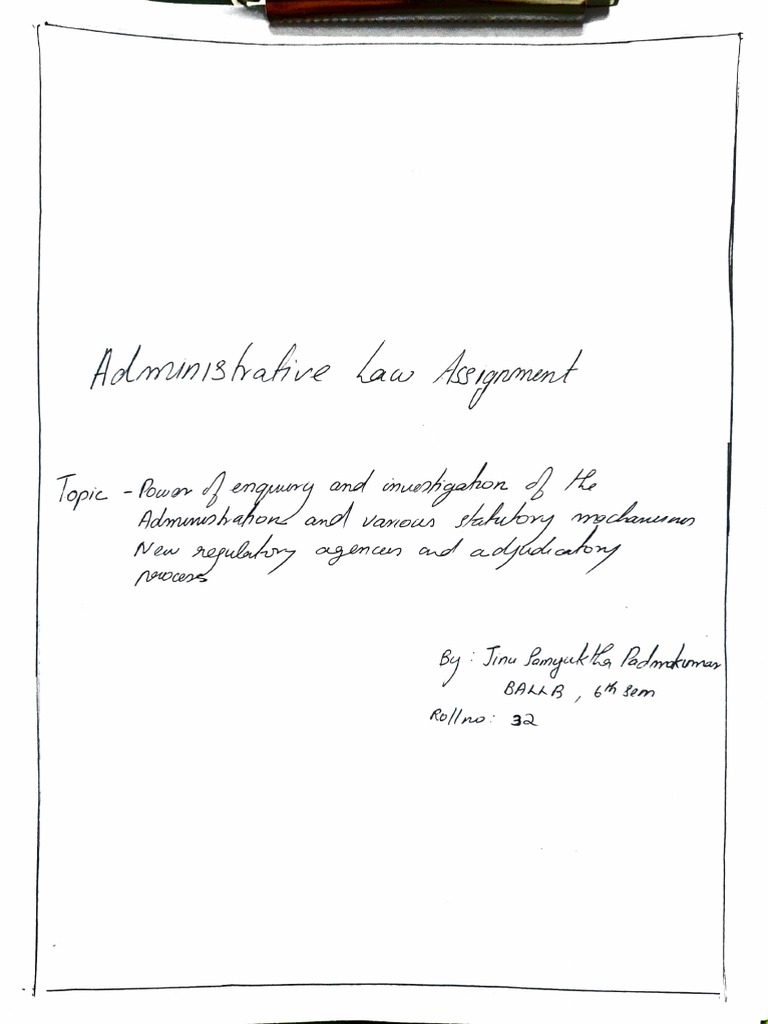 Administrative Law Assignment
Topic - Power of enquiry and investigation of the
Administration and various statutory mechanisms
New regulatory agencies and adjudicatory
process
By: Jinu Samyuktha Padmakumar
BALLB, 6th sem
Roll no: 32